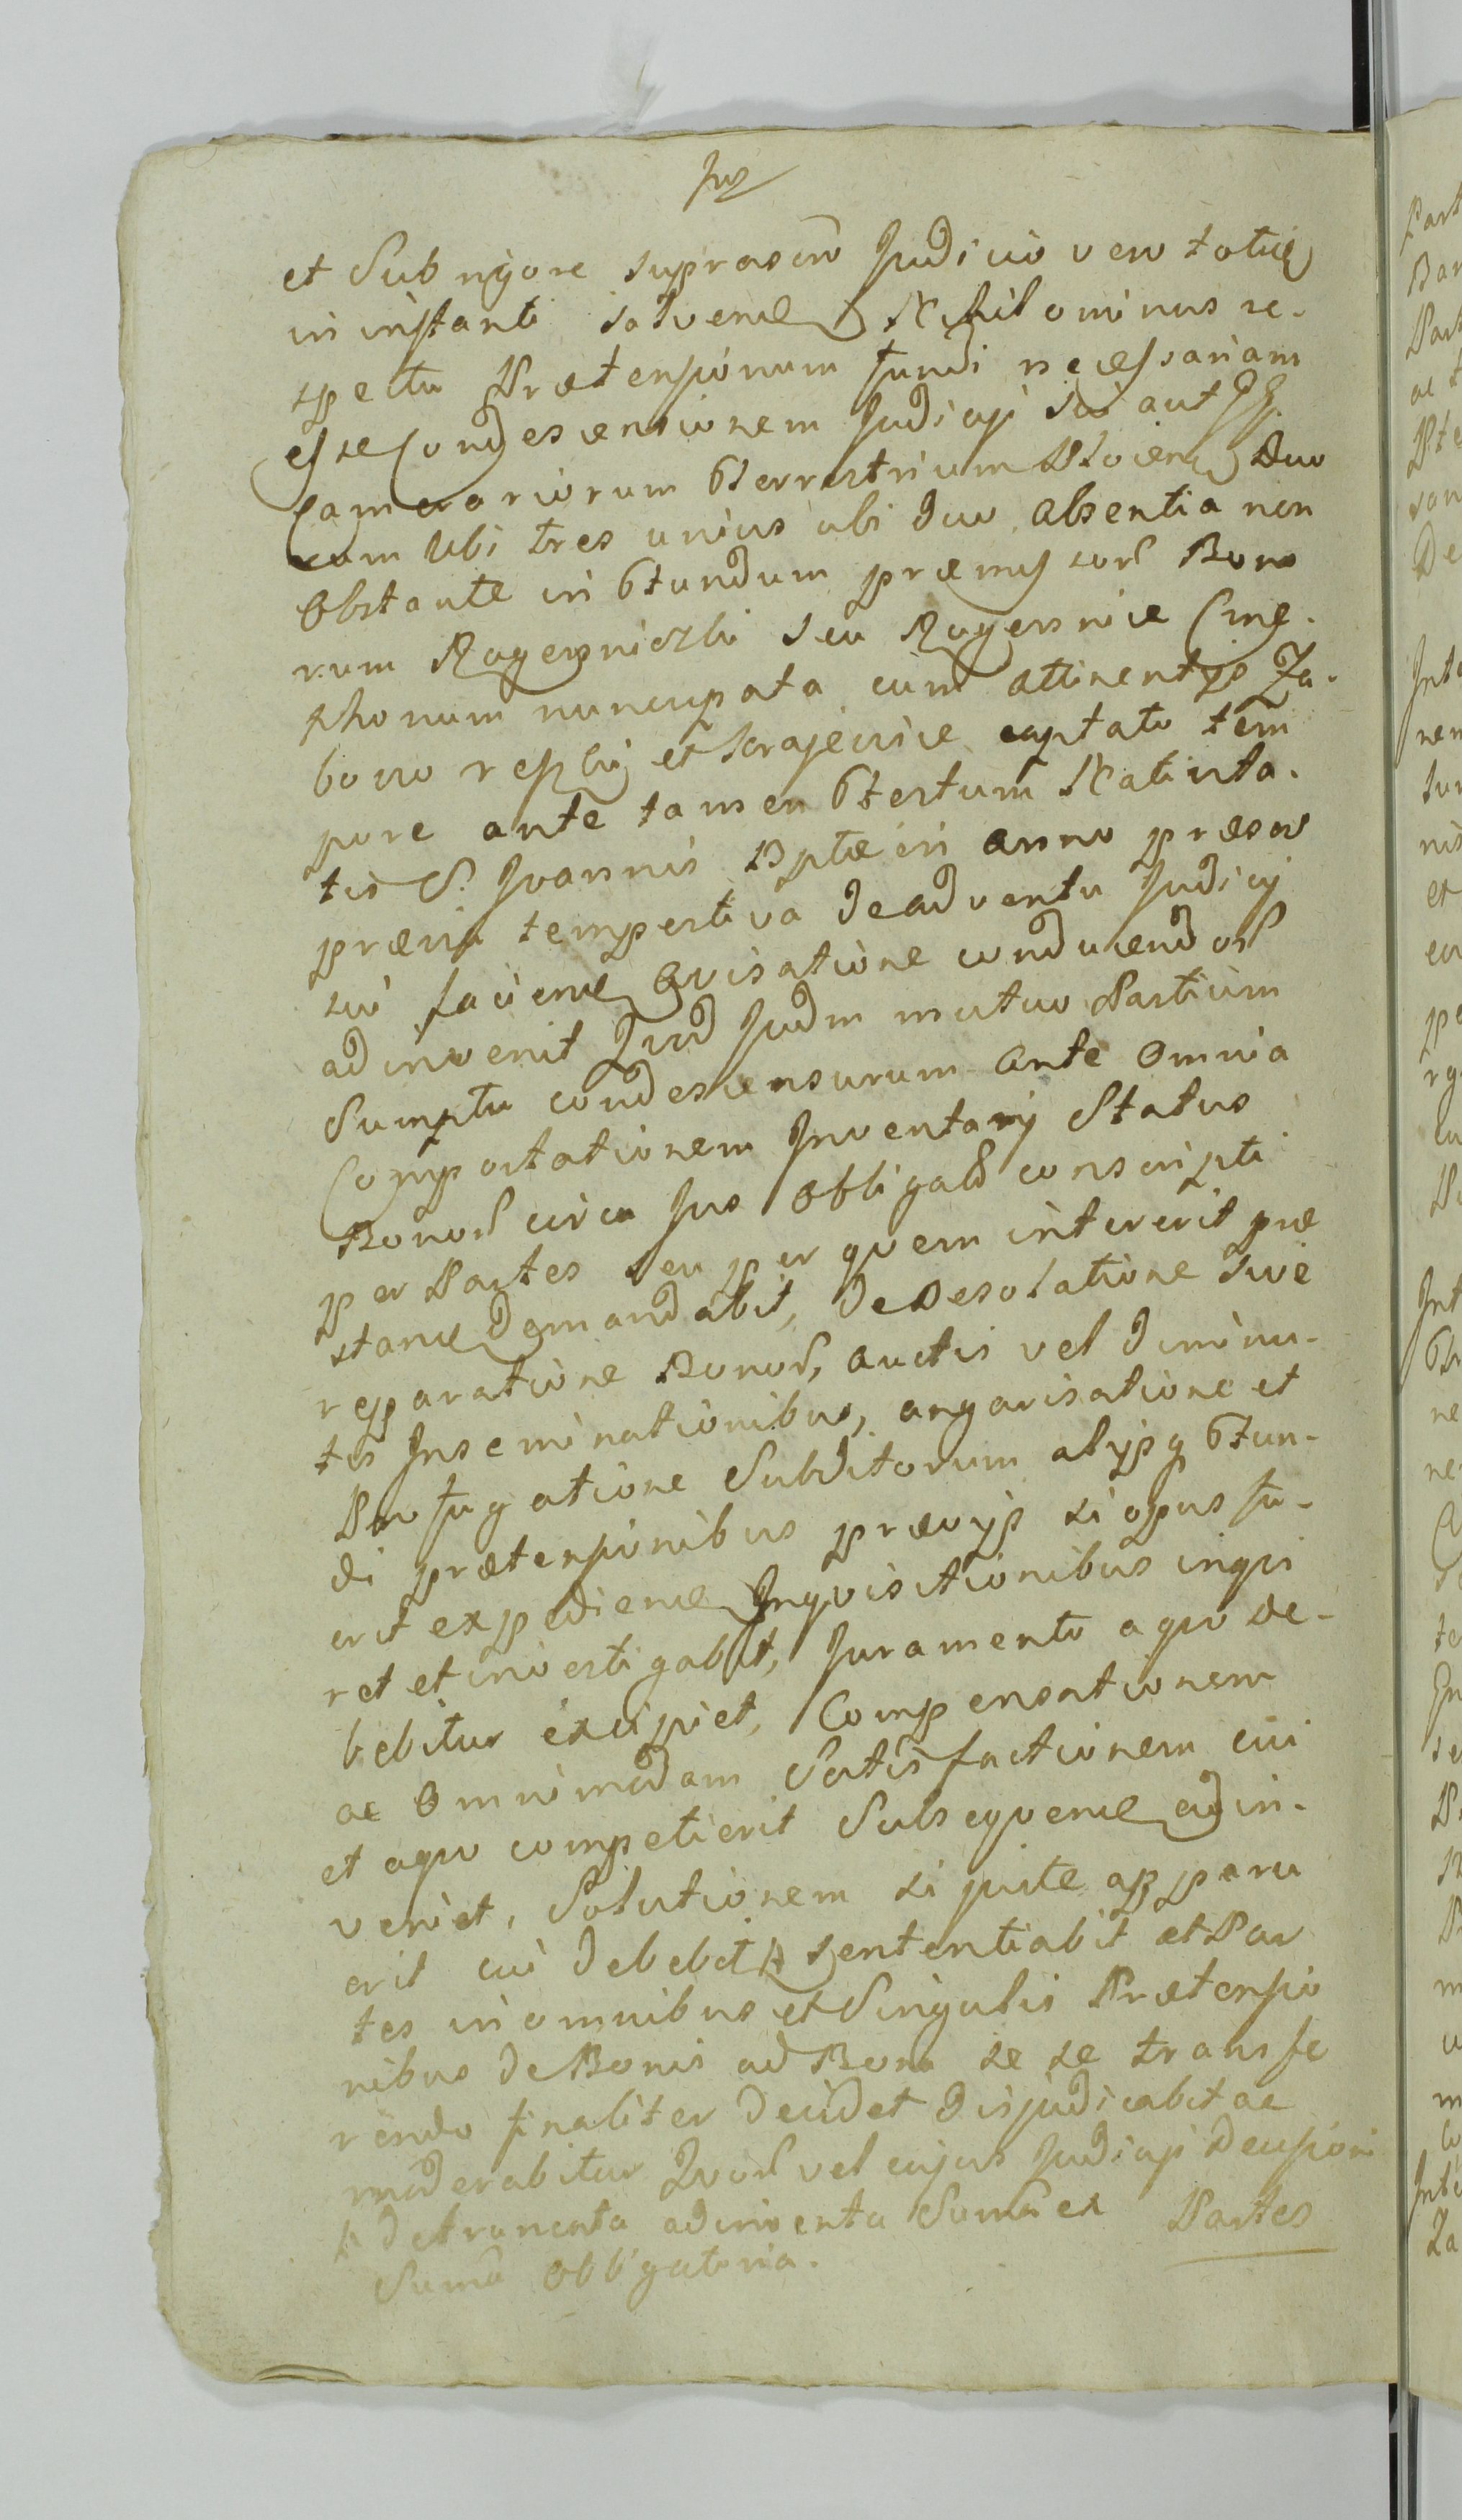 Jus
et Sub rigore suprascro Judicio vero totie
in instanti Solvend Nihilominus re-
spectu Prætensionum fundi necessariam
esse Condescensionem Judicij sui aut GG
Camerariorum Terrestrium Duo
rum Ubi tres unius ubi duo absentia non
Obstante in Fundum præmissor Bono
rum seu Cme-
thonum nuncupata cum attinentijs Za-
et captato tem
pore ante tamen Festum Nativita-
tis S. Joannis Bptæ in anno præsen
prævia tempestiva de adventu Judicij
sui faciend avisatione conducendor
adinvenit Quod Judm mutuo Partium
Sumptu condescensurum ante omnia
Comportationem Inventarij Status
Bonor circa Jus Obligatd conscripti
per Partes seu per quem intererit præ
stand demandabit, de Desolatione sive
reparatione Bonor, auctis vel diminu-
tis Inseminationibus, angarisatione et
Profugatione Subditorum alijsq Fun-
di prætensionibus prævijs si opus fu-
erit expediend Inqvisitionibus inqvi
ret et investigabit, Juramento a quo de-
bebitur excipiet, Compensationem
ac Omnimodam Satisfactionem cui
et a quo competierit Subsequend adin-
veniet, Solutionem si juste apparu
erit cui debebit # sententiabit et Par
tes in omnibus et Singulis Prætensio
nibus de Bonis ad Bona se se transfe
rendo finaliter decidet dijudicabit ac
moderabitur Quor vel cujus Judicij Decisioni
# detruncata adinventa Summa ex Partes
Summa Obligatoria.